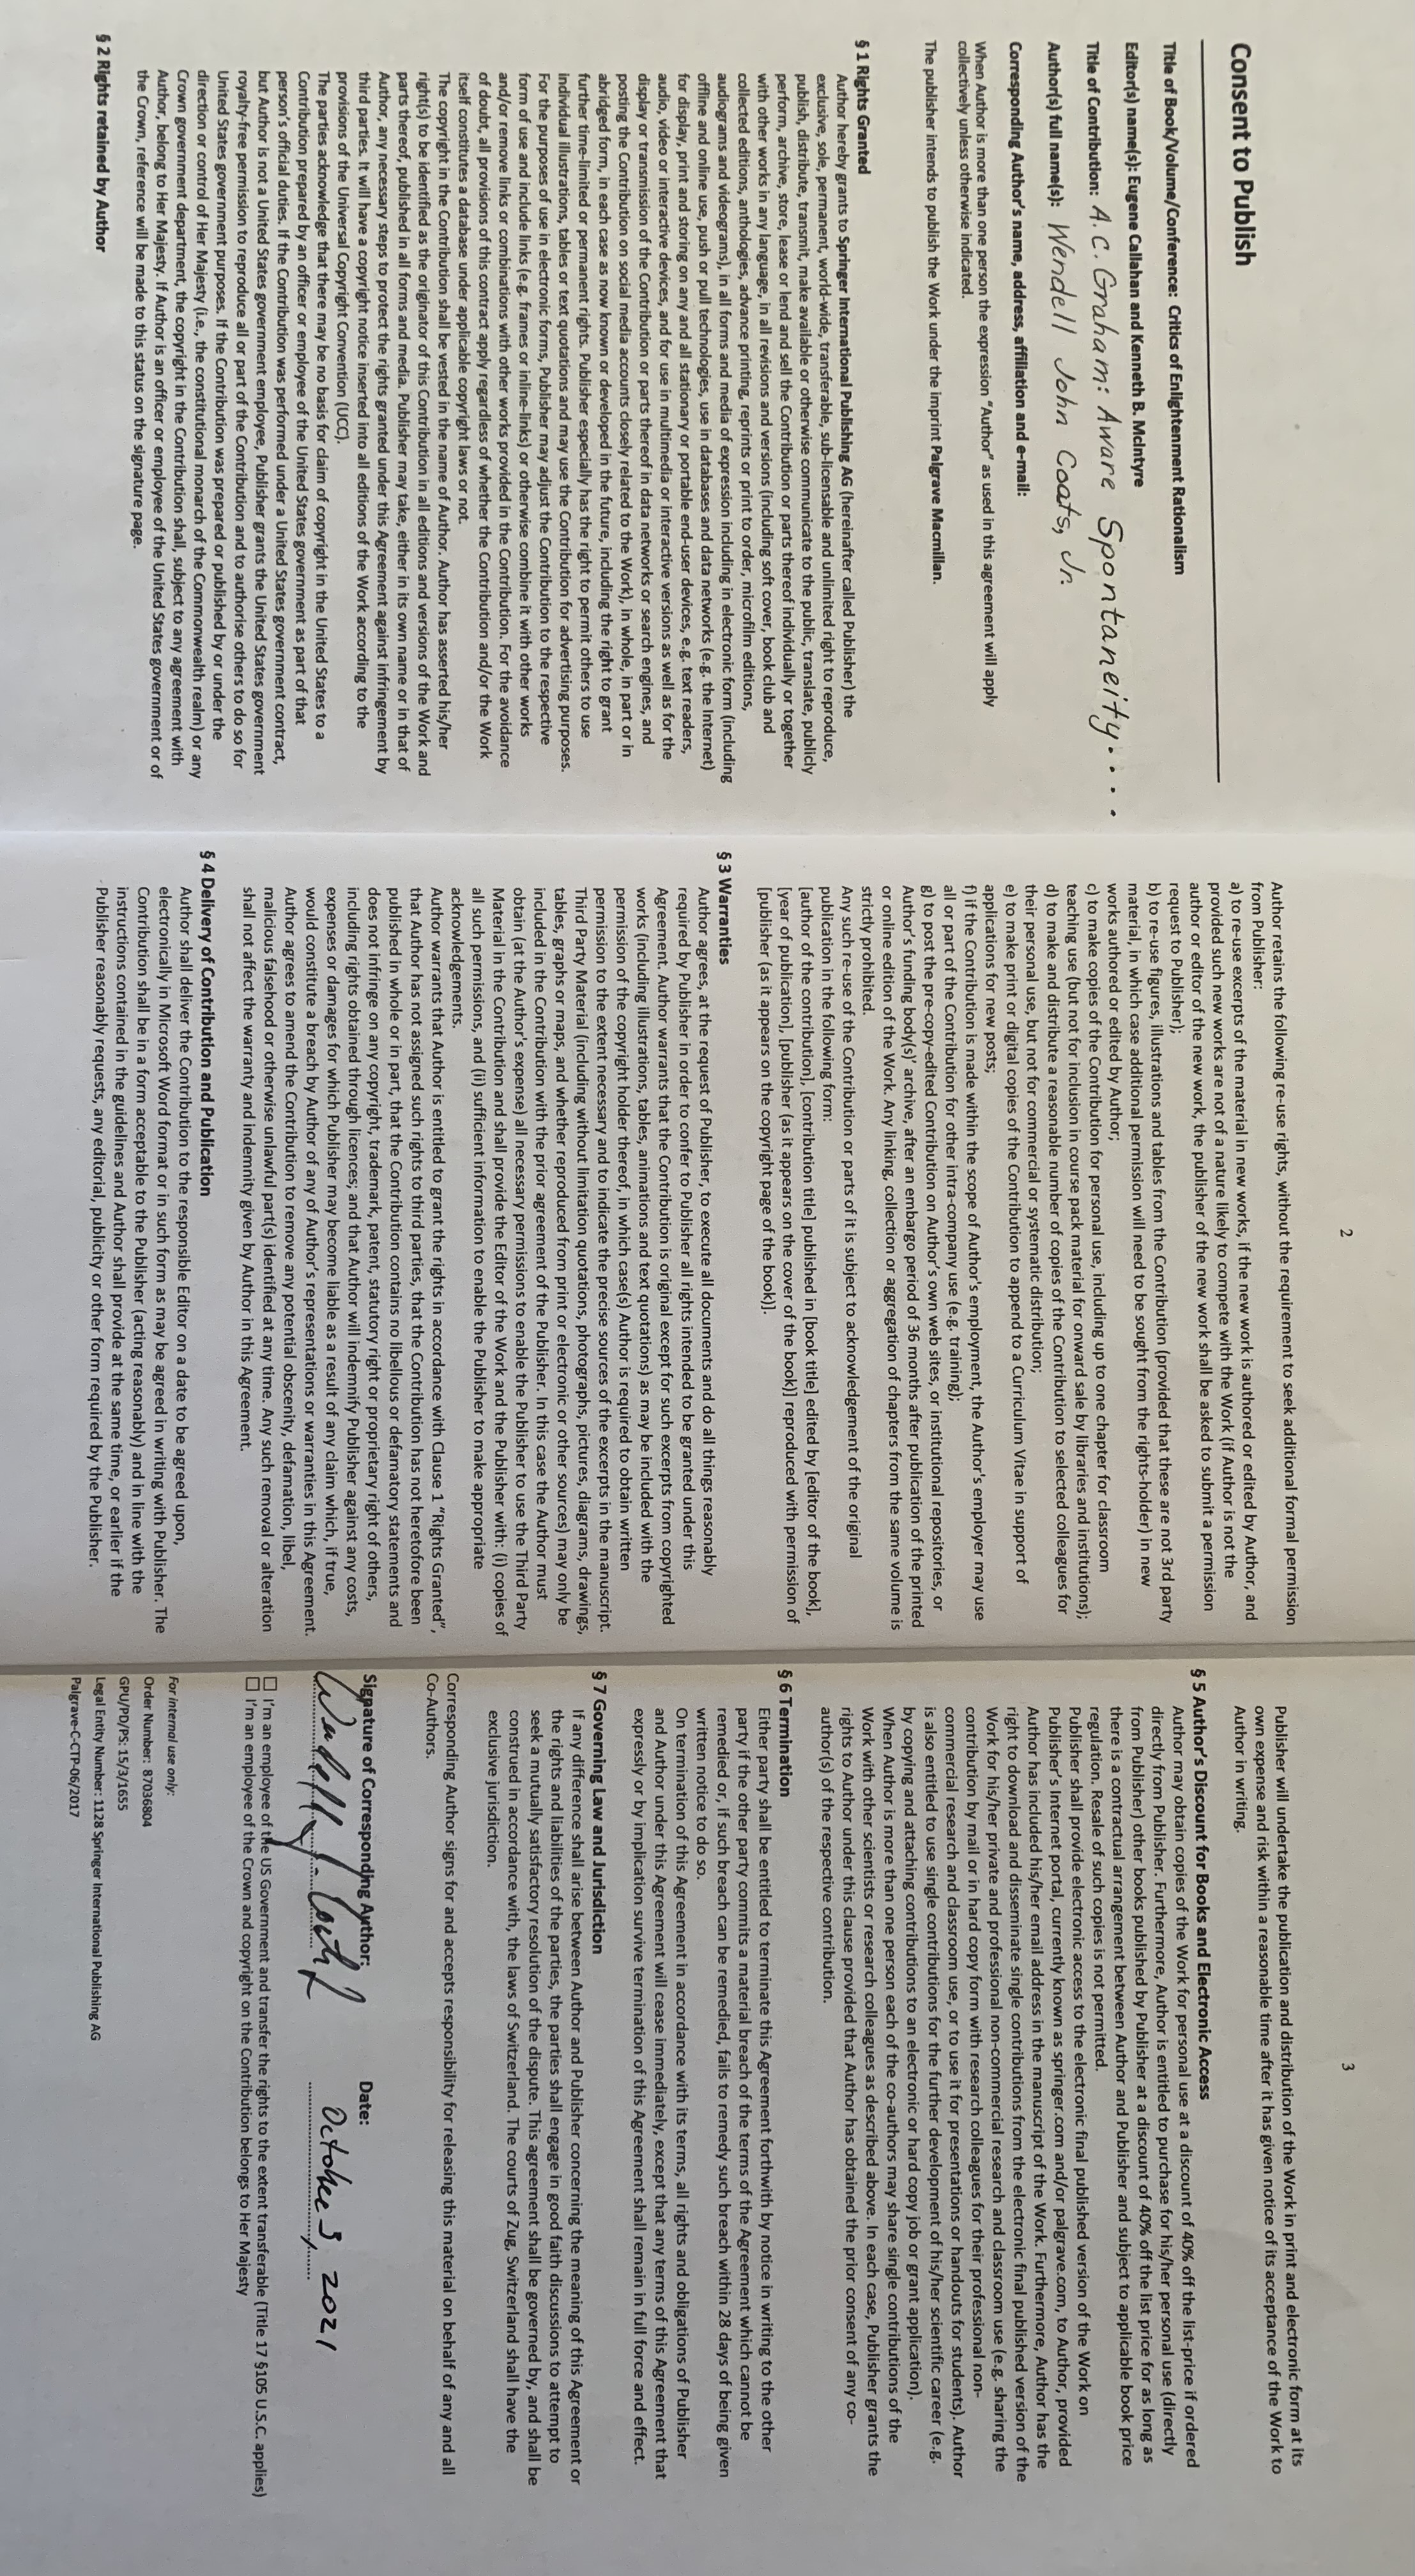 Consent to Publish
Title of Book/Volume/Conference: Critics of Enlightenment Rationalism
Editor(s) name(s): Eugene Callahan and Kenneth B. McIntyre
Title of Contribution: A.C. Graham: Aware Spontaneity....
Author(s) full name(s): Wendell John Coats, Jr.
Corresponding Author's name, address, affiliation and e-mail:
When Author is more than one person the expression "Author" as used in this agreement will apply
collectively unless otherwise indicated.
The publisher intends to publish the Work under the imprint Palgrave Macmillan.
§ 1 Rights Granted
Author hereby grants to Springer International Publishing AG (hereinafter called Publisher) the
exclusive, sole, permanent, world-wide, transferable, sub-licensable and unlimited right to reproduce,
publish, distribute, transmit, make available or otherwise communicate to the public, translate, publicly
perform, archive, store, lease or lend and sell the Contribution or parts thereof individually or together
with other works in any language, in all revisions and versions (including soft cover, book club and
collected editions, anthologies, advance printing, reprints or print to order, microfilm editions,
audiograms and videograms), in all forms and media of expression including in electronic form (including
offline and online use, push or pull technologies, use in databases and data networks (e.g. the Internet)
for display, print and storing on any and all stationary or portable end-user devices, e.g. text readers,
audio, video or interactive devices, and for use in multimedia or interactive versions as well as for the
display or transmission of the Contribution or parts thereof in data networks or search engines, and
posting the Contribution on social media accounts closely related to the Work), in whole, in part or in
abridged form, in each case as now known or developed in the future, including the right to grant
further time-limited or permanent rights. Publisher especially has the right to permit others to use
individual illustrations, tables or text quotations and may use the Contribution for advertising purposes.
For the purposes of use in electronic forms, Publisher may adjust the Contribution to the respective
form of use and include links (e.g. frames or inline-links) or otherwise combine it with other works
and/or remove links or combinations with other works provided in the Contribution. For the avoidance
of doubt, all provisions of this contract apply regardless of whether the Contribution and/or the Work
itself constitutes a database under applicable copyright laws or not.
The copyright in the Contribution shall be vested in the name of Author. Author has asserted his/her
right(s) to be identified as the originator of this Contribution in all editions and versions of the Work and
parts thereof, published in all forms and media. Publisher may take, either in its own name or in that of
Author, any necessary steps to protect the rights granted under this Agreement against infringement by
third parties. It will have a copyright notice inserted into all editions of the Work according to the
provisions of the Universal Copyright Convention (UCC).
The parties acknowledge that there may be no basis for claim of copyright in the United States to a
Contribution prepared by an officer or employee of the United States government as part of that
person's official duties. If the Contribution was performed under a United States government contract,
but Author is not a United States government employee, Publisher grants the United States government
royalty-free permission to reproduce all or part of the Contribution and to authorise others to do so for
United States government purposes. If the Contribution was prepared or published by or under the
direction or control of Her Majesty (i.e., the constitutional monarch of the Commonwealth realm) or any
Crown government department, the copyright in the Contribution shall, subject to any agreement with
Author, belong to Her Majesty. If Author is an officer or employee of the United States government or of
the Crown, reference will be made to this status on the signature page.
§ 2 Rights retained by Author
2
Author retains the following re-use rights, without the requirement to seek additional formal permission
from Publisher:
a) to re-use excerpts of the material in new works, if the new work is authored or edited by Author, and
provided such new works are not of a nature likely to compete with the Work (if Author is not the
author or editor of the new work, the publisher of the new work shall be asked to submit a permission
request to Publisher);
b) to re-use figures, illustrations and tables from the Contribution (provided that these are not 3rd party
material, in which case additional permission will need to be sought from the rights-holder) in new
works authored or edited by Author;
c) to make copies of the Contribution for personal use, including up to one chapter for classroom
teaching use (but not for inclusion in course pack material for onward sale by libraries and institutions);
d) to make and distribute a reasonable number of copies of the Contribution to selected colleagues for
their personal use, but not for commercial or systematic distribution;
e) to make print or digital copies of the Contribution to append to a Curriculum Vitae in support of
applications for new posts;
f) if the Contribution is made within the scope of Author's employment, the Author's employer may use
all or part of the Contribution for other intra-company use (e.g. training);
g) to post the pre-copy-edited Contribution on Author's own web sites, or institutional repositories, or
Author's funding body(s)' archive, after an embargo period of 36 months after publication of the printed
or online edition of the Work. Any linking, collection or aggregation of chapters from the same volume is
strictly prohibited.
Any such re-use of the Contribution or parts of it is subject to acknowledgement of the original
publication in the following form:
[author of the contribution], [contribution title] published in [book title] edited by [editor of the book],
[year of publication], [publisher (as it appears on the cover of the book)] reproduced with permission of
[publisher (as it appears on the copyright page of the book)].
§ 3 Warranties
Author agrees, at the request of Publisher, to execute all documents and do all things reasonably
required by Publisher in order to confer to Publisher all rights intended to be granted under this
Agreement. Author warrants that the Contribution is original except for such excerpts from copyrighted
works (including illustrations, tables, animations and text quotations) as may be included with the
permission of the copyright holder thereof, in which case(s) Author is required to obtain written
permission to the extent necessary and to indicate the precise sources of the excerpts in the manuscript.
Third Party Material (including without limitation quotations, photographs, pictures, diagrams, drawings,
tables, graphs or maps, and whether reproduced from print or electronic or other sources) may only be
included in the Contribution with the prior agreement of the Publisher. In this case the Author must
obtain (at the Author's expense) all necessary permissions to enable the Publisher to use the Third Party
Material in the Contribution and shall provide the Editor of the Work and the Publisher with: (i) copies of
all such permissions, and (ii) sufficient information to enable the Publisher to make appropriate
acknowledgements.
Author warrants that Author is entitled to grant the rights in accordance with Clause 1 "Rights Granted",
that Author has not assigned such rights to third parties, that the Contribution has not heretofore been
published in whole or in part, that the Contribution contains no libellous or defamatory statements and
does not infringe on any copyright, trademark, patent, statutory right or proprietary right of others,
including rights obtained through licences; and that Author will indemnify Publisher against any costs,
expenses or damages for which Publisher may become liable as a result of any claim which, if true,
would constitute a breach by Author of any of Author's representations or warranties in this Agreement.
Author agrees to amend the Contribution to remove any potential obscenity, defamation, libel,
malicious falsehood or otherwise unlawful part(s) identified at any time. Any such removal or alteration
shall not affect the warranty and indemnity given by Author in this Agreement.
§ 4 Delivery of Contribution and Publication
Author shall deliver the Contribution to the responsible Editor on a date to be agreed upon,
electronically in Microsoft Word format or in such form as may be agreed in writing with Publisher. The
Contribution shall be in a form acceptable to the Publisher (acting reasonably) and in line with the
instructions contained in the guidelines and Author shall provide at the same time, or earlier if the
Publisher reasonably requests, any editorial, publicity or other form required by the Publisher.
3
Publisher will undertake the publication and distribution of the Work in print and electronic form at its
own expense and risk within a reasonable time after it has given notice of its acceptance of the Work to
Author in writing.
§ 5 Author's Discount for Books and Electronic Access
Author may obtain copies of the Work for personal use at a discount of 40% off the list-price if ordered
directly from Publisher. Furthermore, Author is entitled to purchase for his/her personal use (directly
from Publisher) other books published by Publisher at a discount of 40% off the list price for as long as
there is a contractual arrangement between Author and Publisher and subject to applicable book price
regulation. Resale of such copies is not permitted.
Publisher shall provide electronic access to the electronic final published version of the Work on
Publisher's Internet portal, currently known as springer.com and/or palgrave.com, to Author, provided
Author has included his/her email address in the manuscript of the Work. Furthermore, Author has the
right to download and disseminate single contributions from the electronic final published version of the
Work for his/her private and professional non-commercial research and classroom use (e.g. sharing the
contribution by mail or in hard copy form with research colleagues for their professional non-
commercial research and classroom use, or to use it for presentations or handouts for students). Author
is also entitled to use single contributions for the further development of his/her scientific career (e.g.
by copying and attaching contributions to an electronic or hard copy job or grant application).
When Author is more than one person each of the co-authors may share single contributions of the
Work with other scientists or research colleagues as described above. In each case, Publisher grants the
rights to Author under this clause provided that Author has obtained the prior consent of any co-
author(s) of the respective contribution.
§ 6 Termination
Either party shall be entitled to terminate this Agreement forthwith by notice in writing to the other
party if the other party commits a material breach of the terms of the Agreement which cannot be
remedied or, if such breach can be remedied, fails to remedy such breach within 28 days of being given
written notice to do so.
On termination of this Agreement in accordance with its terms, all rights and obligations of Publisher
and Author under this Agreement will cease immediately, except that any terms of this Agreement that
expressly or by implication survive termination of this Agreement shall remain in full force and effect.
§ 7 Governing Law and Jurisdiction
If any difference shall arise between Author and Publisher concerning the meaning of this Agreement or
the rights and liabilities of the parties, the parties shall engage in good faith discussions to attempt to
seek a mutually satisfactory resolution of the dispute. This agreement shall be governed by, and shall be
construed in accordance with, the laws of Switzerland. The courts of Zug, Switzerland shall have the
exclusive jurisdiction.
Corresponding Author signs for and accepts responsibility for releasing this material on behalf of any and all
Co-Authors.
Signature of Corresponding Author: Date:
October 5, 2021
☐ I'm an employee of the US Government and transfer the rights to the extent transferable (Title 17 §105 U.S.C. applies)
☐ I'm an employee of the Crown and copyright on the Contribution belongs to Her Majesty
For internal use only:
Order Number: 87036804
GPU/PD/PS: 15/3/1655
Legal Entity Number: 1128 Springer International Publishing AG
Palgrave-C-CTP-06/2017